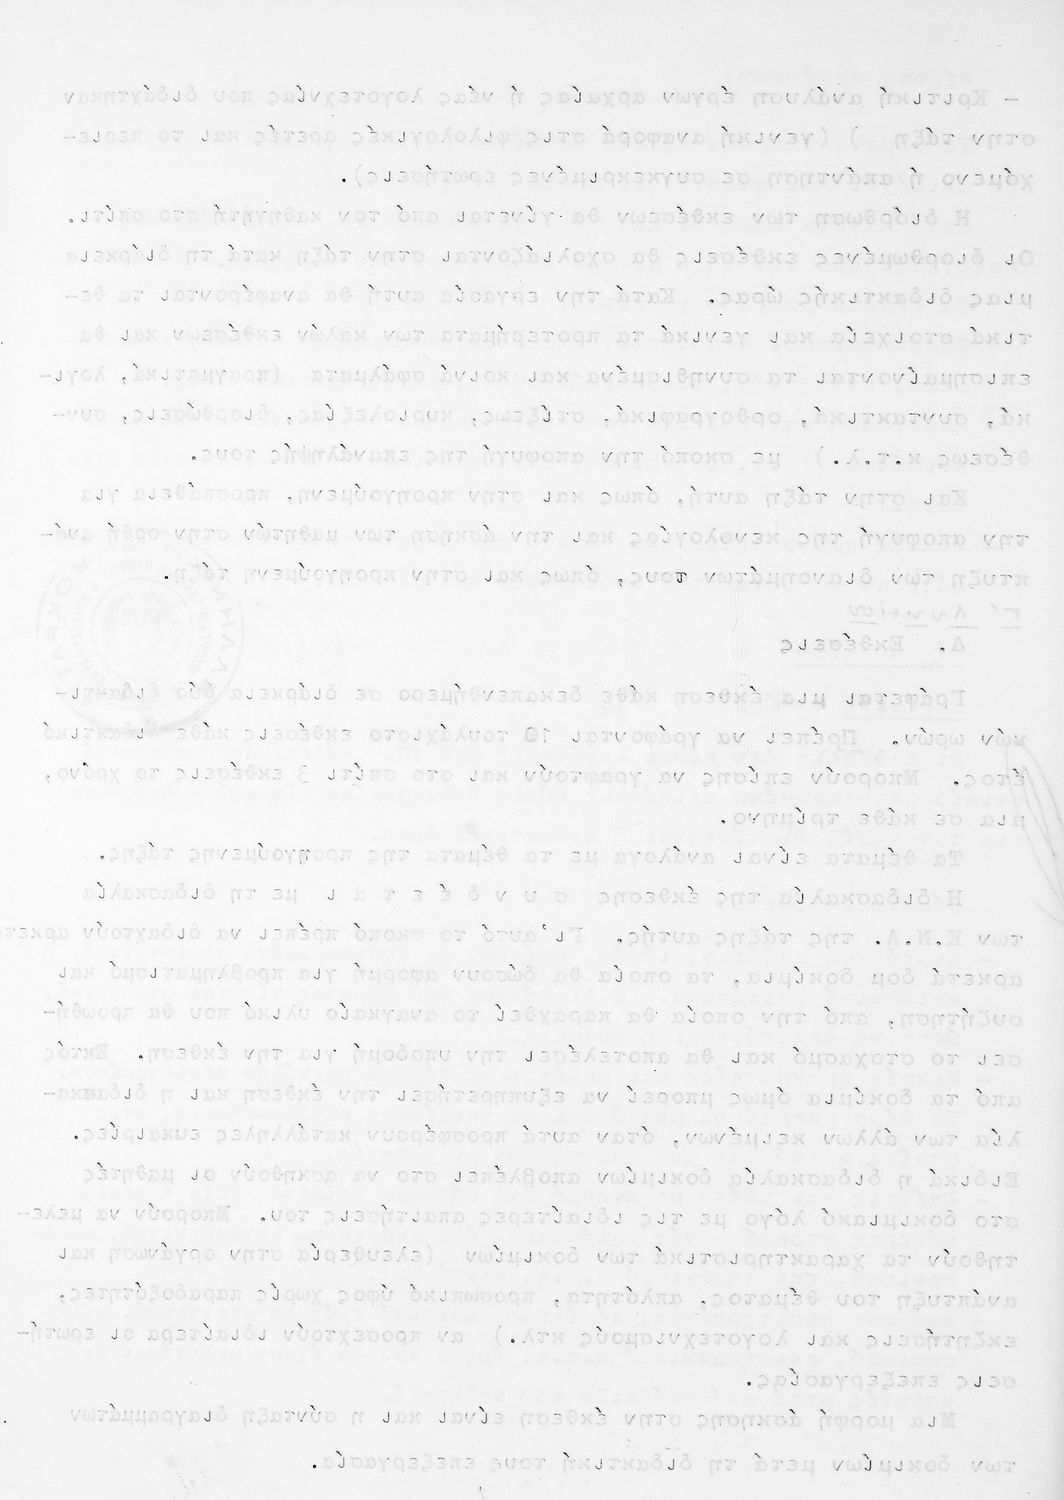 - Κριτική ανάλυση έργων αρχαίας ή νέας λογοτεχνίας που διδάχτηκαν
στην τάξη ) (γενική αναφορά στις φιλολογικές αρετές και το περιε-
χόμενο ή απάντηση σε συγκεκριμένες ερωτήσεις).
Η διόρθωση των εκθέσεων θα γίνεται από τον καθηγητή στο σπίτι.
Οι διορθωμένες εκθέσεις θα σχολιάζονται στην τάξη κατά τη διάρκεια
μιας διδακτικής ώρας. Κατά την εργασία αυτή θα αναφέρονται τα θε-
τικά στοιχεία και γενικά τα προτερήματα των καλών εκθέσεων και θα
επισημαίνονται τα συνηθισμένα και κοινά σφάλματα (πραγματικά, λογι-
κά, συντακτικά, ορθογραφικά, στίξεως, κυριολεξίας, διορθώσεις, συν-
θέσεως κ.τ.λ.) με σκοπό την αποφυγή της επανάληψής τους.
Και στην τάξη αυτή, όπως και στην προηγούμενη, προσπάθεια για
την αποφυγή της κενολογίας και την άσκηση των μαθητών στην ορθή ανά-
πτυξη των διανοημάτων τους, όπως και στην προηγούμενη τάξη.
Γ' Λυκείου
Δ. Εκθέσεις
Γράφεται μια έκθεση κάθε δεκαπενθήμερο σε διάρκεια δύο διδακτι-
κών ωρών. Πρέπει να γράφονται 10 τουλάχιστο εκθέσεις κάθε διδακτικό
έτος. Μπορούν επίσης να γραφτούν και στο σπίτι 3 εκθέσεις το χρόνο,
μια σε κάθε τρίμηνο.
Τα θέματα είναι ανάλογα με τα θέματα της προηγούμενης τάξης.
Η διδασκαλία της έκθεσης σ υ ν δ έ ε τ α ι με τη διδασκαλία
των Κ.Ν.Λ. της τάξης αυτής. Γι'αυτό το σκοπό πρέπει να διδαχτούν αρκετά
αρκετά δομ δοκίμια, τα οποία θα δώσουν αφορμή για προβληματισμό και
συζήτηση, από την οποία θα παραχθεί το αναγκαίο υλικό που θα προωθή-
σει το στοχασμό και θα αποτελέσει την υποδομή για την έκθεση. Εκτός
από τα δοκίμια όμως μπορεί να εξυπηρετήσει την έκθεση και η διδασκα-
λία των άλλων κειμένων, όταν αυτά προσφέρουν κατάλληλες ευκαιρίες.
Ειδικά η διδασκαλία δοκιμίων αποβλέπει στο να ασκηθούν οι μαθητές
στο δοκιμιακό λόγο με τις ιδιαίτερες απαιτήσεις του. Μπορούν να μελε-
τηθούν τα χαρακτηριστικά των δοκιμίων (ελευθερία στην οργάνωση και
ανάπτυξη του θέματος, απλότητα, προσωπικό ύφος χωρίς παραδοξότητες,
εκζητήσεις και λογοτεχνισμούς κτλ.) αν προσεχτούν ιδιαίτερα οι ερωτή-
σεις επεξεργασίας.
Μια μορφή άσκησης στην έκθεση είναι και η σύνταξη διαγραμμάτων
των δοκιμίων μετά τη διδακτική τους επεξεργασία.